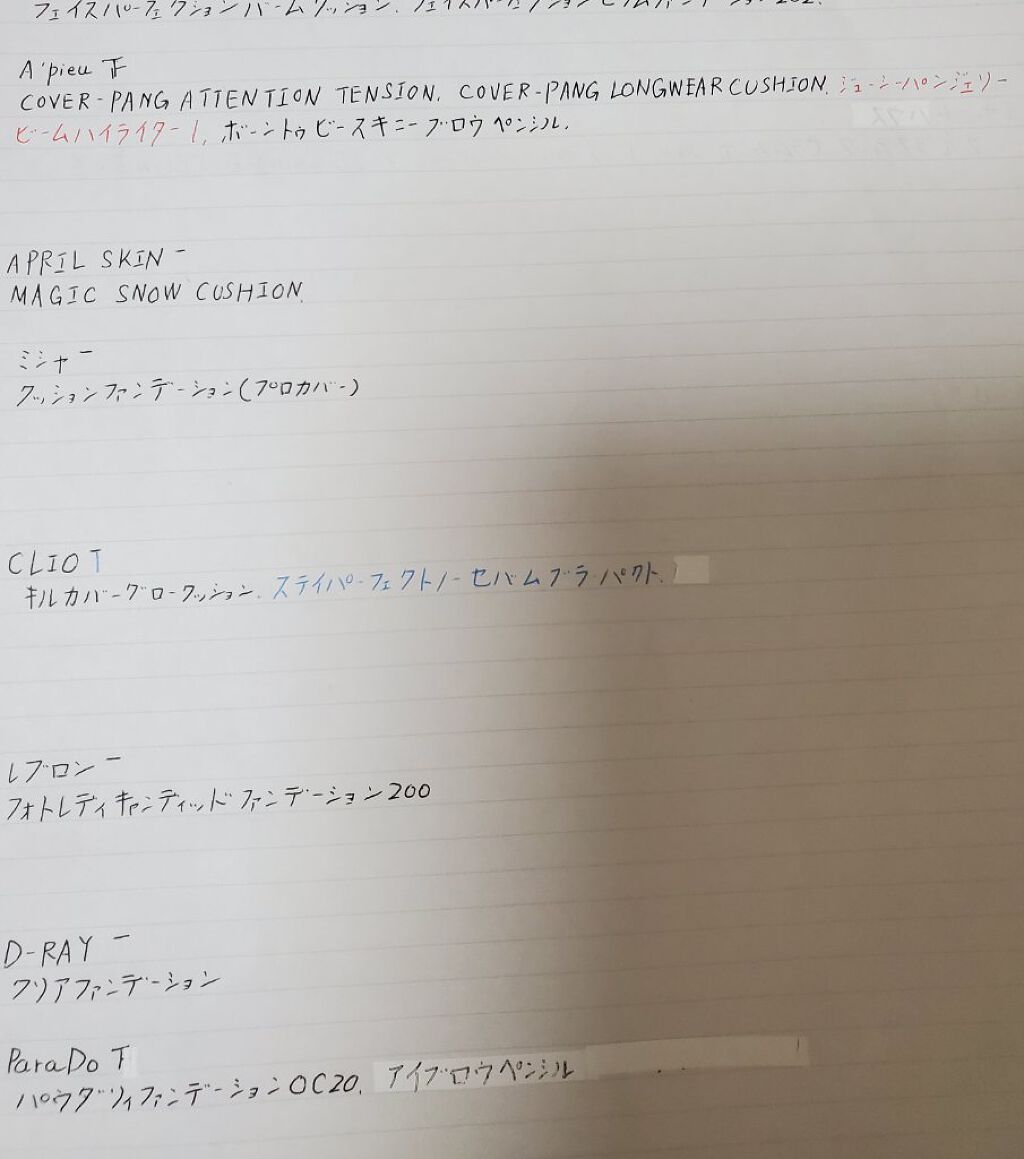 フェイスパーフェクションバームクッション.フェイスパーフェクション
A'pieu 下
COVER-PANG ATTENTION TENSION. COVER-PANG LONGWEAR CUSHION. ジューシーパンジェリー
ビームハイライター1, ボーントゥビースキニーブロウペンシル.
APRIL SKIN ー
MAGIC SNOW CUSHION.
ミシャ ー
クッションファンデーション(プロカバー)
CLIO T
キルカバーグロークッション.ステイパーフェクトノーセバムブラーパクト.
レブロン ー
フォトレディキャンディッドファンデーション200
D-RAY ー
クリアファンデーション
ParaDo 下
パウダリィファンデーションOC20. アイブロウペンシル